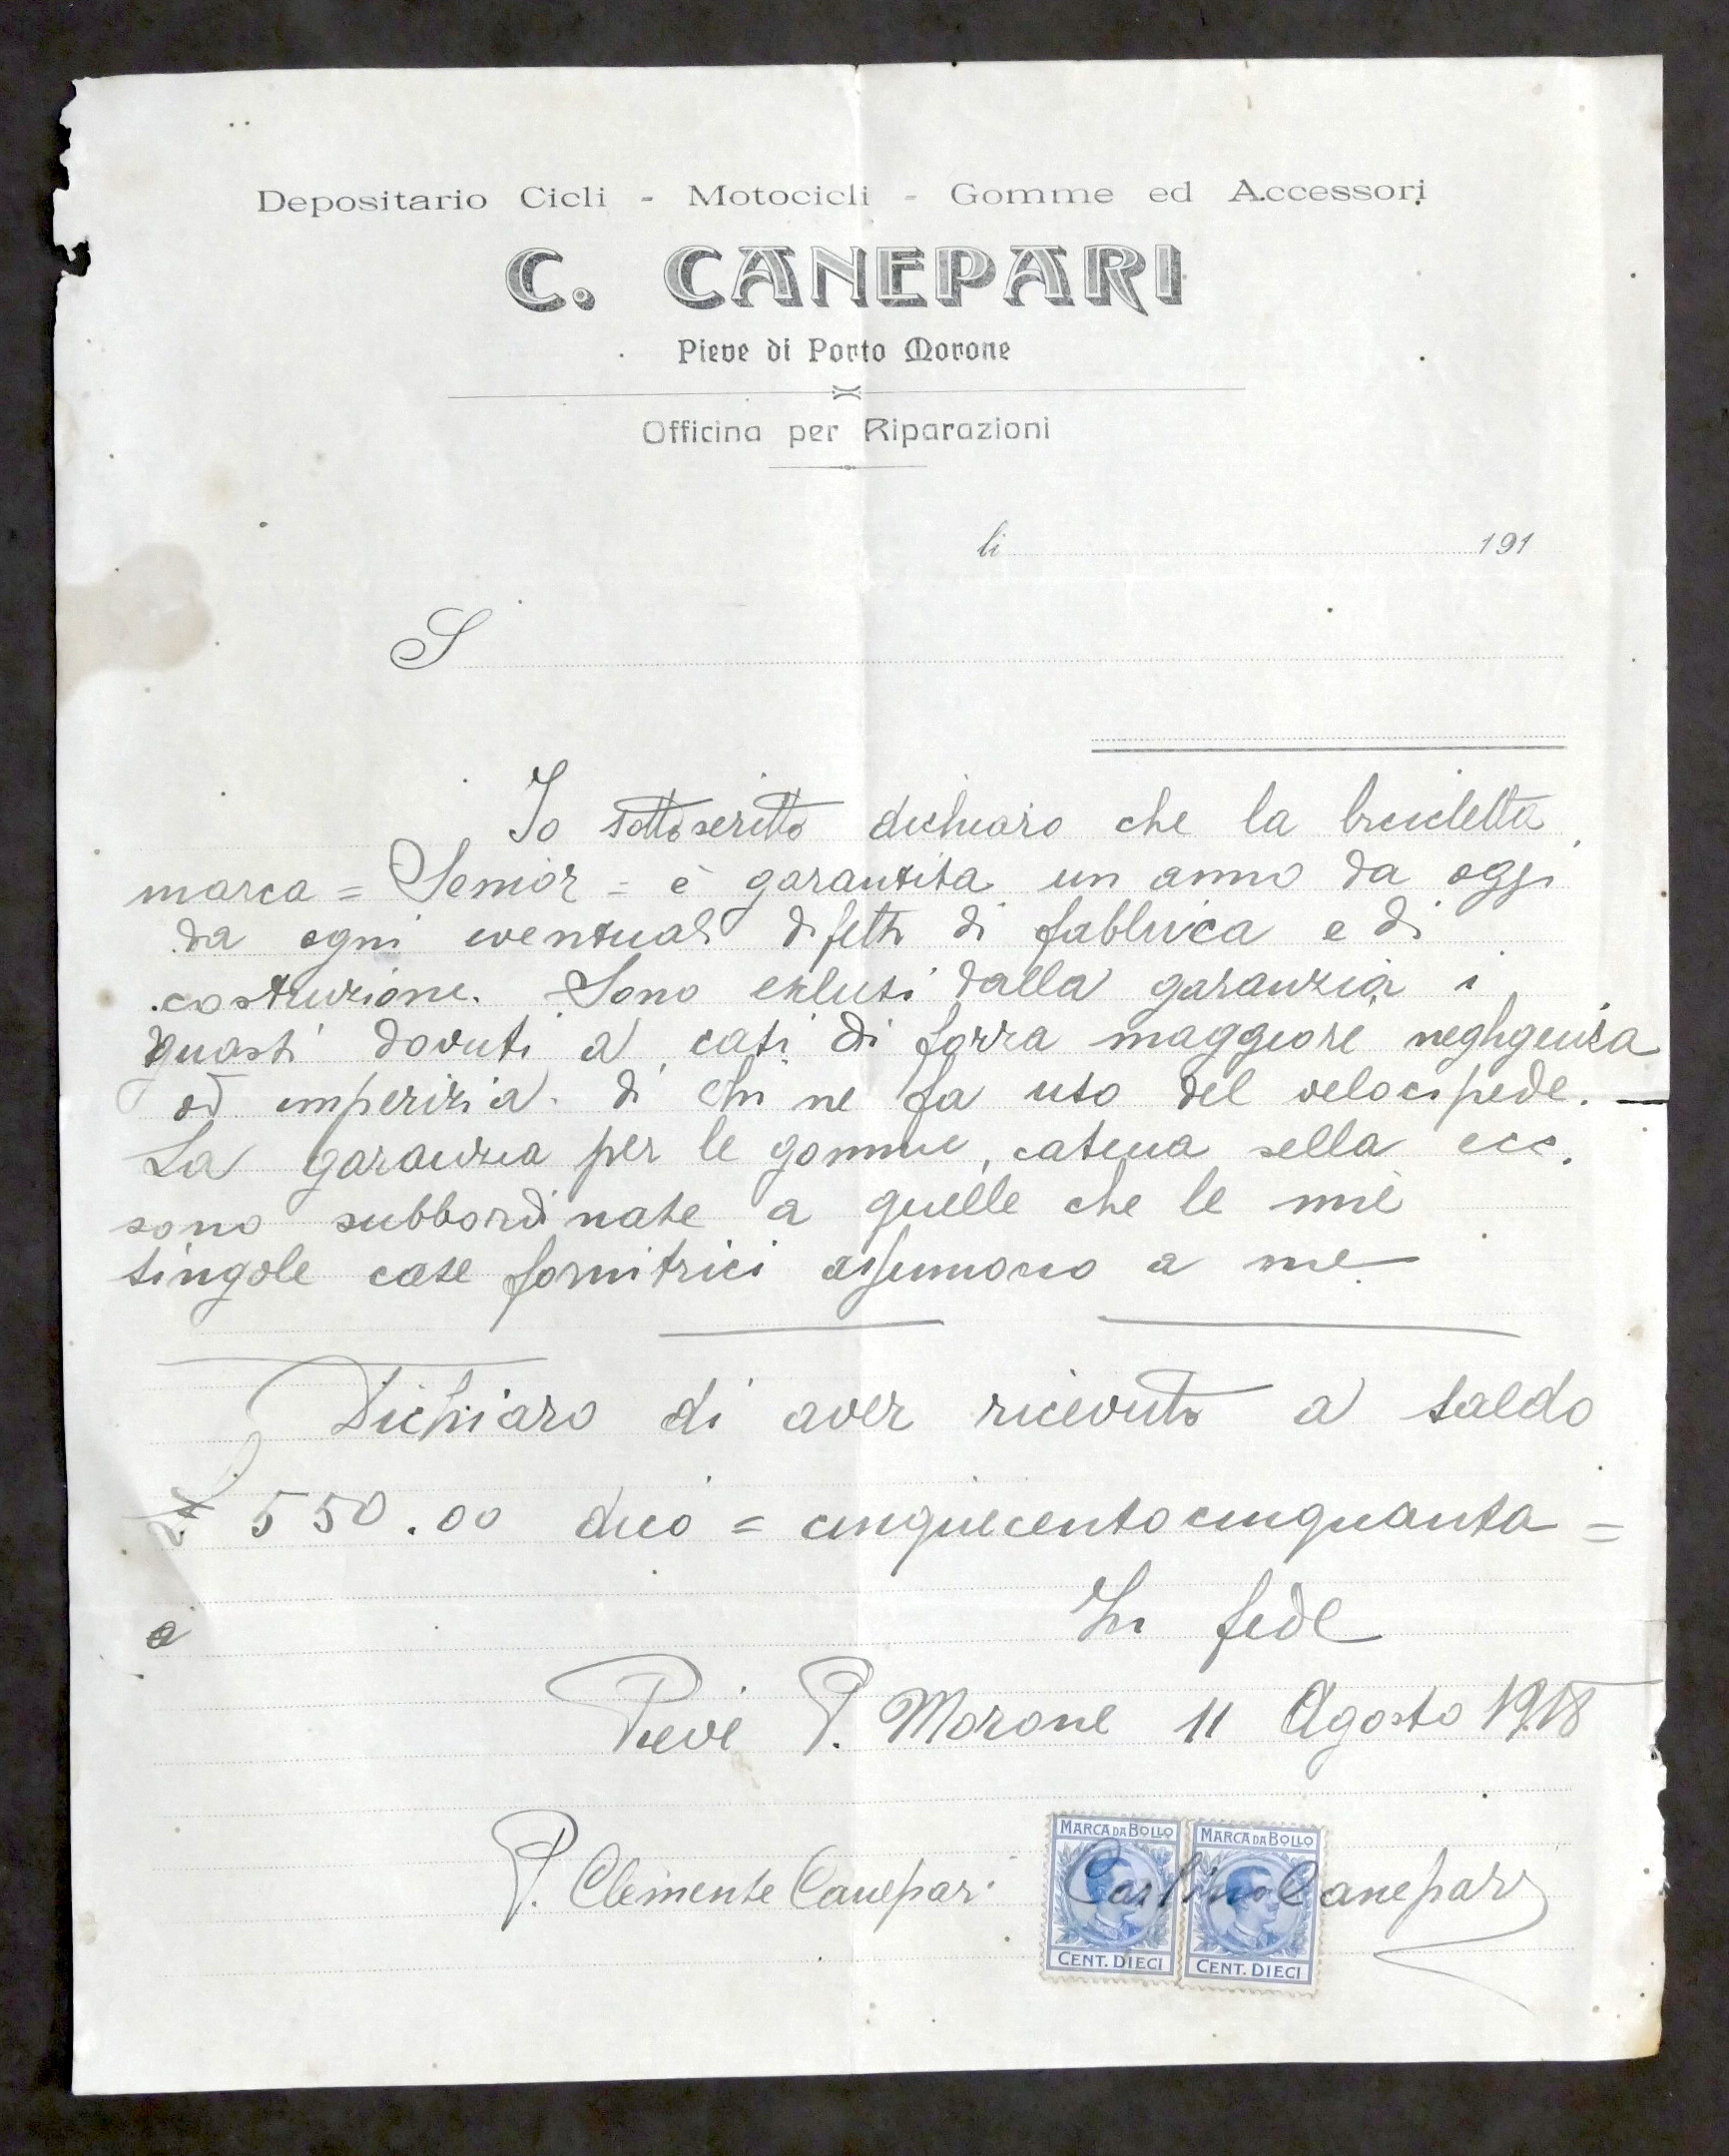 Depositario Cicli - Motocicli - Gomme ed Accessori
C. CANEPARI
Pieve di Porto Morone
Officina per Riparazioni
li 191
S
Io sottoscritto dichiaro che la bicicletta
marca = Senior = è garantita un anno da oggi
da ogni eventuali difetti di fabbrica e di
costruzione. Sono esclusi dalla garanzia i
guasti dovuti a casi di forza maggiore negligenza
od imperizia di chi ne fa uso del velocipede. —
La garanzia per le gomme, catena sella ecc.
sono subbordinate a quelle che le mie
singole case fornitrici assumono a me
Dichiaro di aver ricevuto a saldo
£ 550.00 dico = cinquecentocinquanta =
In fede
Pieve P. Morone 11 Agosto 1918
P. Clemente Canepari Carlino Canepari
MARCA DA BOLLO MARCA DA BOLLO
CENT. DIECI CENT. DIECI